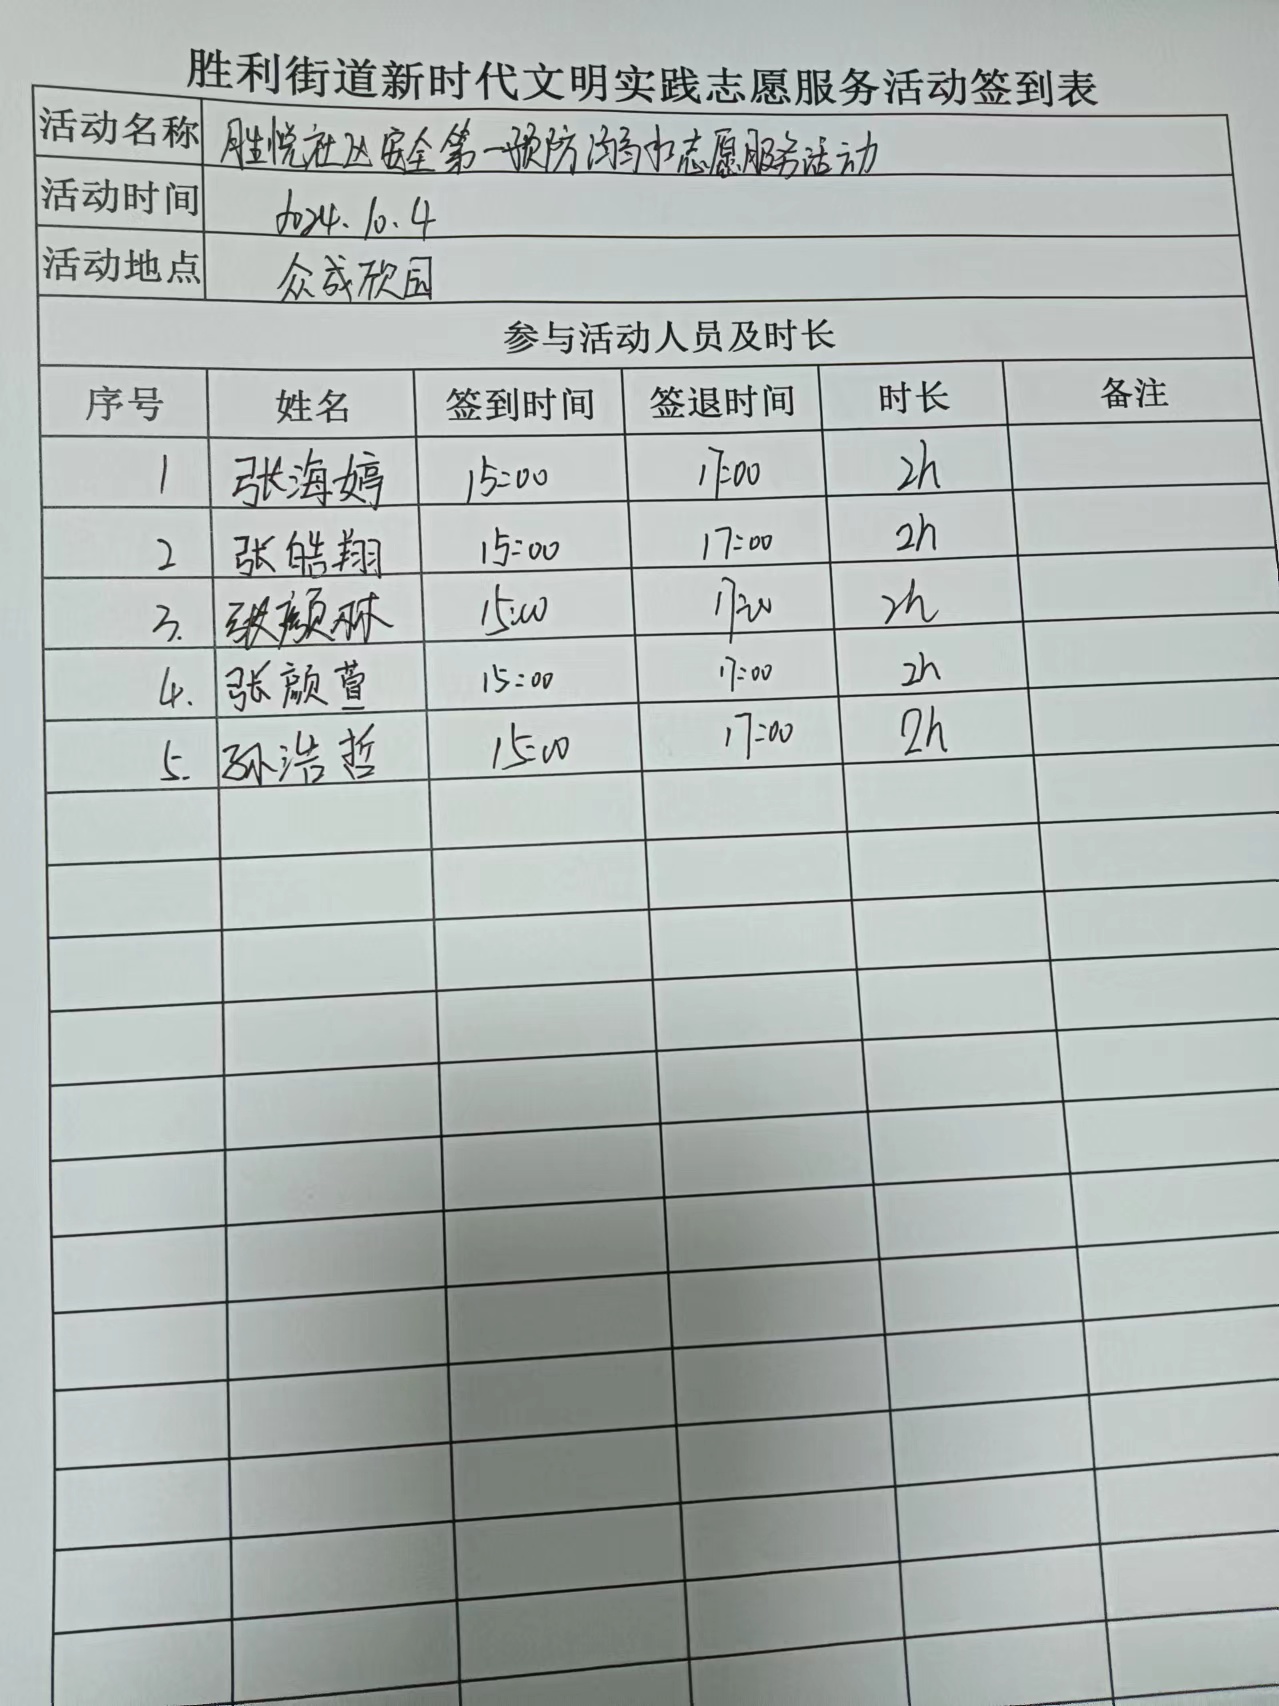 胜利街道新时代文明实践志愿服务活动签到表
活动名称 胜悦社区安全第一预防溺水志愿服务活动
活动时间 2024.10.4
活动地点 众成欣园
参与活动人员及时长
序号 姓名 签到时间 签退时间 时长 备注
1 张海婷 15:00 17:00 2h
2 张皓翔 15:00 17:00 2h
3. 张颜琳 15:00 17:00 2h
4. 张颜萱 15:00 17:00 2h
5. 孙浩哲 15:00 17:00 2h